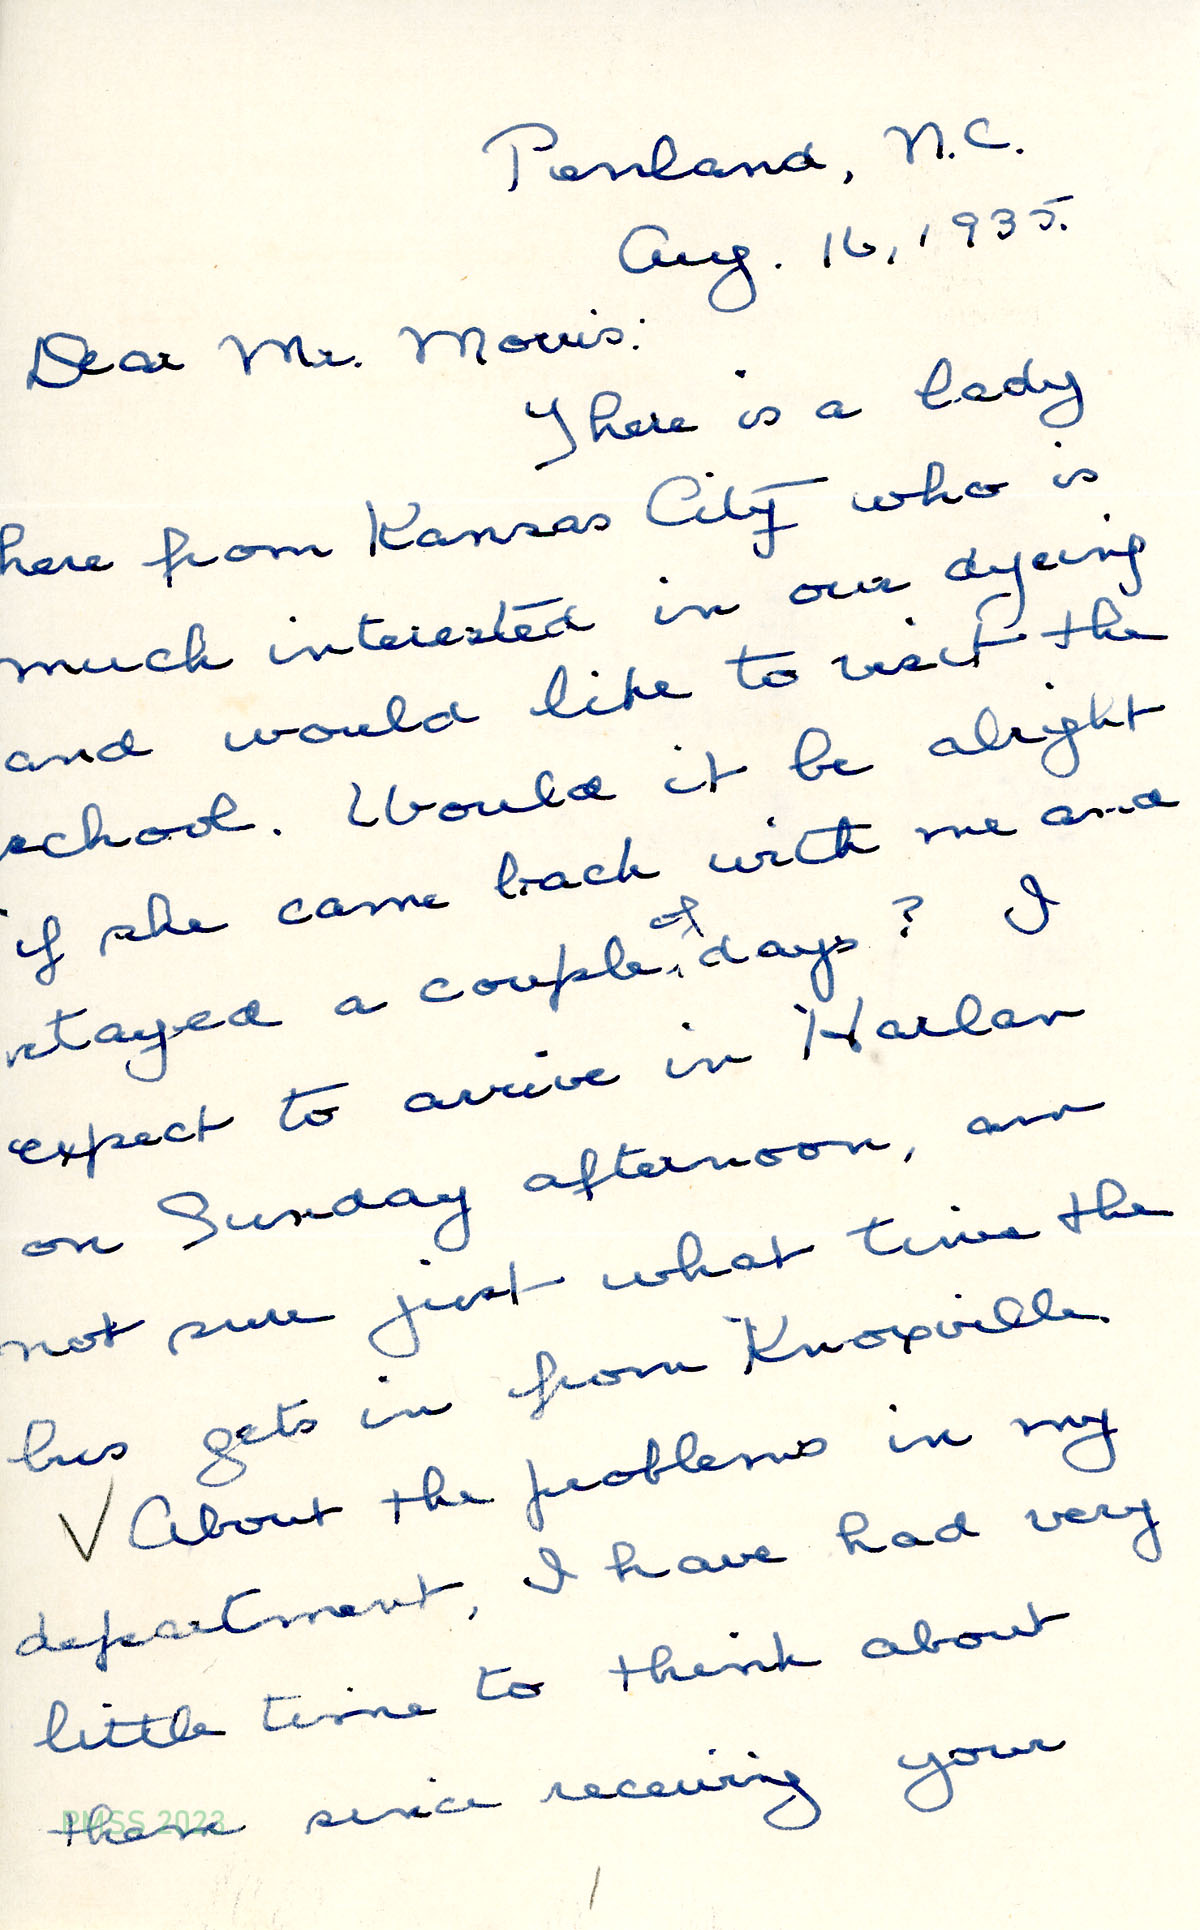 Penland, N.C.
Aug. 16, 1935.
Dear Mr. Morris:
There is a lady
here from Kansas City who is
much interested in our dyeing
and would like to visit the
school. Would it be alright
if she came back with me and
stayed a couple of days? I
expect to arrive in Harlan
on Sunday afternoon, am
not sure just what time the
bus gets in from Knoxville.
√ About the problems in my
department, I have had very
little time to think about
them since receiving your
PMSS 2023
1